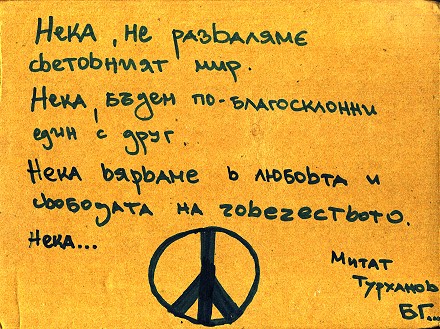 Нека, не разваляме
световният мир.
Нека, бъдем по-благосклонни
един с друг
Нека вярваме в любовта и
свободата на човечеството.
Нека...
Митат
Турханов
БГ...